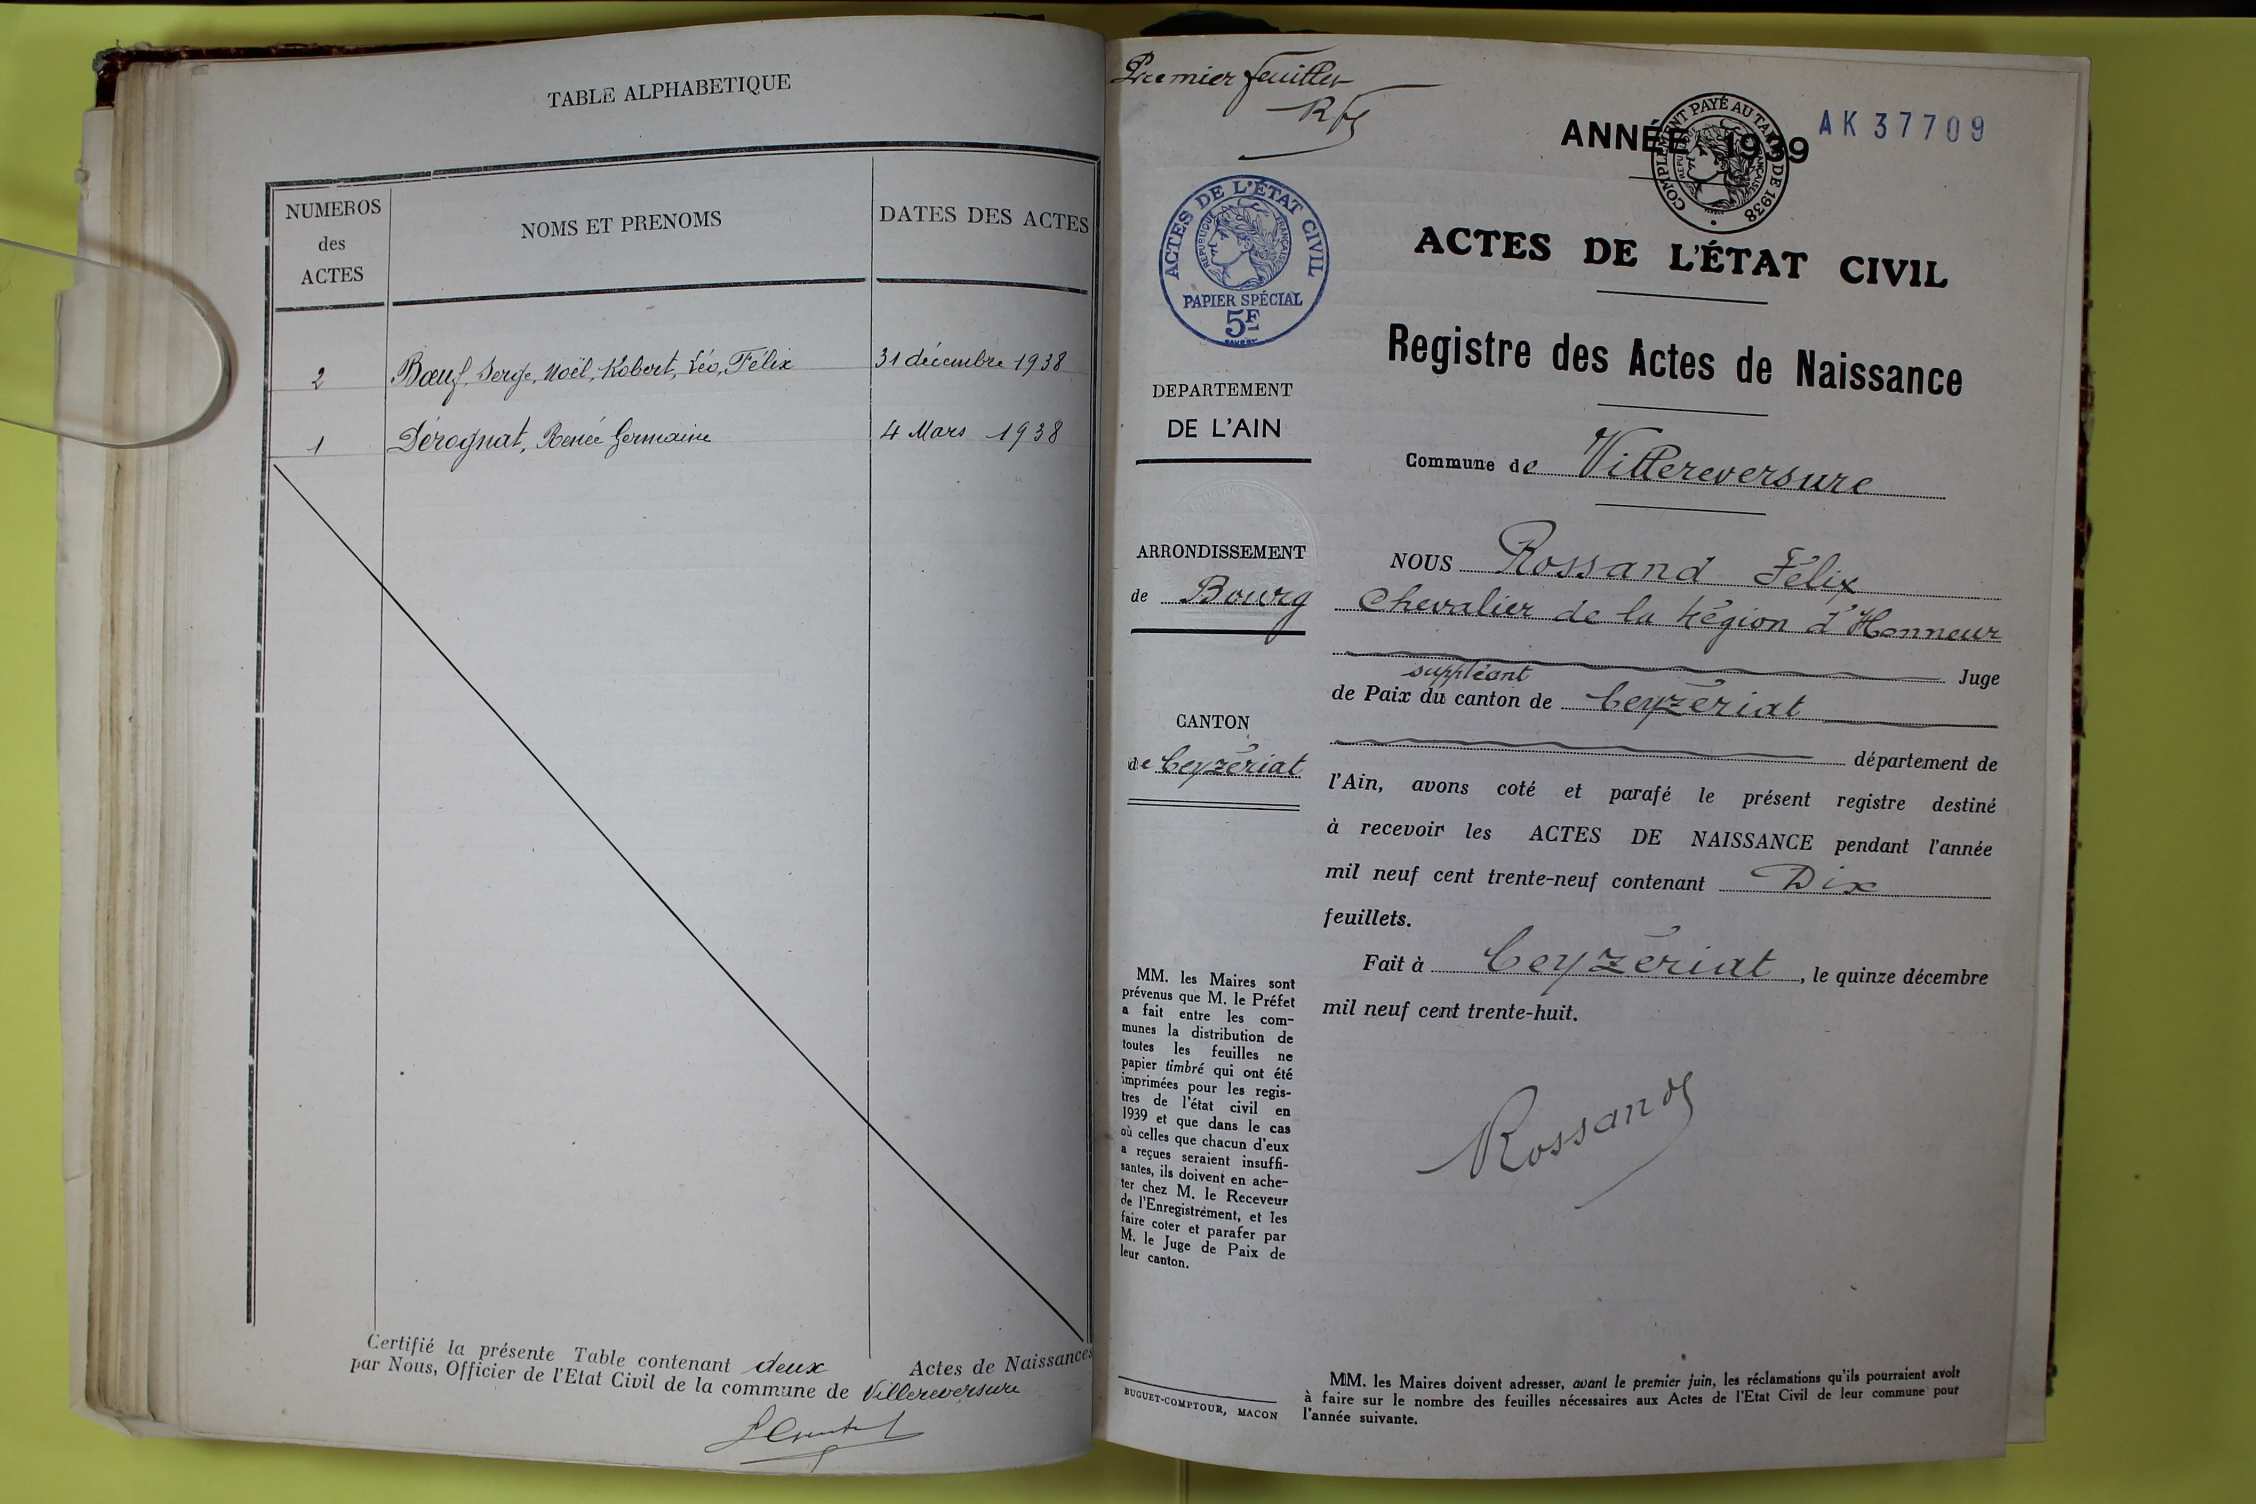 TABLE ALPHABETIQUE
NUMEROS
des
ACTES
NOMS ET PRENOMS
DATES DES ACTES
2 Bœuf, Serge, Noël, Robert, Léo, Félix 31 décembre 1938
1 Dérognat, Renée Germaine 4 Mars 1938
Certifié la présente Table contenant deux Actes de Naissances
par Nous, Officier de l'Etat Civil de la commune de Villereversure
Premier feuillet
ANNÉE 1939
COMPLEMENT PAYÉ AU TARIF DE 1938
AK 37709
ACTES DE L'ÉTAT CIVIL
REPUBLIQUE FRANÇAISE
PAPIER SPÉCIAL
5F
DEPARTEMENT
DE L'AIN
ARRONDISSEMENT
de Bourg
CANTON
de Ceyzériat
MM. les Maires sont
prévenus que M. le Préfet
a fait entre les com-
munes la distribution de
toutes les feuilles ne
papier timbré qui ont été
imprimées pour les regis-
tres de l'état civil en
1939 et que dans le cas
où celles que chacun d'eux
a reçues seraient insuffi-
santes, ils doivent en ache-
ter chez M. le Receveur
de l'Enregistrement, et les
faire coter et parafer par
M. le Juge de Paix de
leur canton.
BUGUET-COMPTOUR, MACON
ACTES DE L'ÉTAT CIVIL
Registre des Actes de Naissance
Commune de Villereversure
NOUS Rossand Félix
Chevalier de la Légion d'Honneur
Juge
suppléant
de Paix du canton de Ceyzériat
département de
l'Ain, avons coté et parafé le présent registre destiné
à recevoir les ACTES DE NAISSANCE pendant l'année
mil neuf cent trente-neuf contenant Dix
feuillets.
Fait à Ceyzériat, le quinze décembre
mil neuf cent trente-huit.
Rossand
MM. les Maires doivent adresser, avant le premier juin, les réclamations qu'ils pourraient avoir
à faire sur le nombre des feuilles nécessaires aux Actes de l'Etat Civil de leur commune pour
l'année suivante.